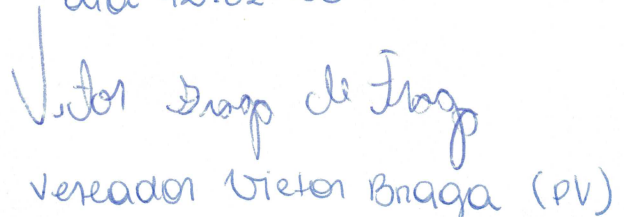 dia 12.02
Vitor Braga de Fraga
Vereador Victor Braga (PV)